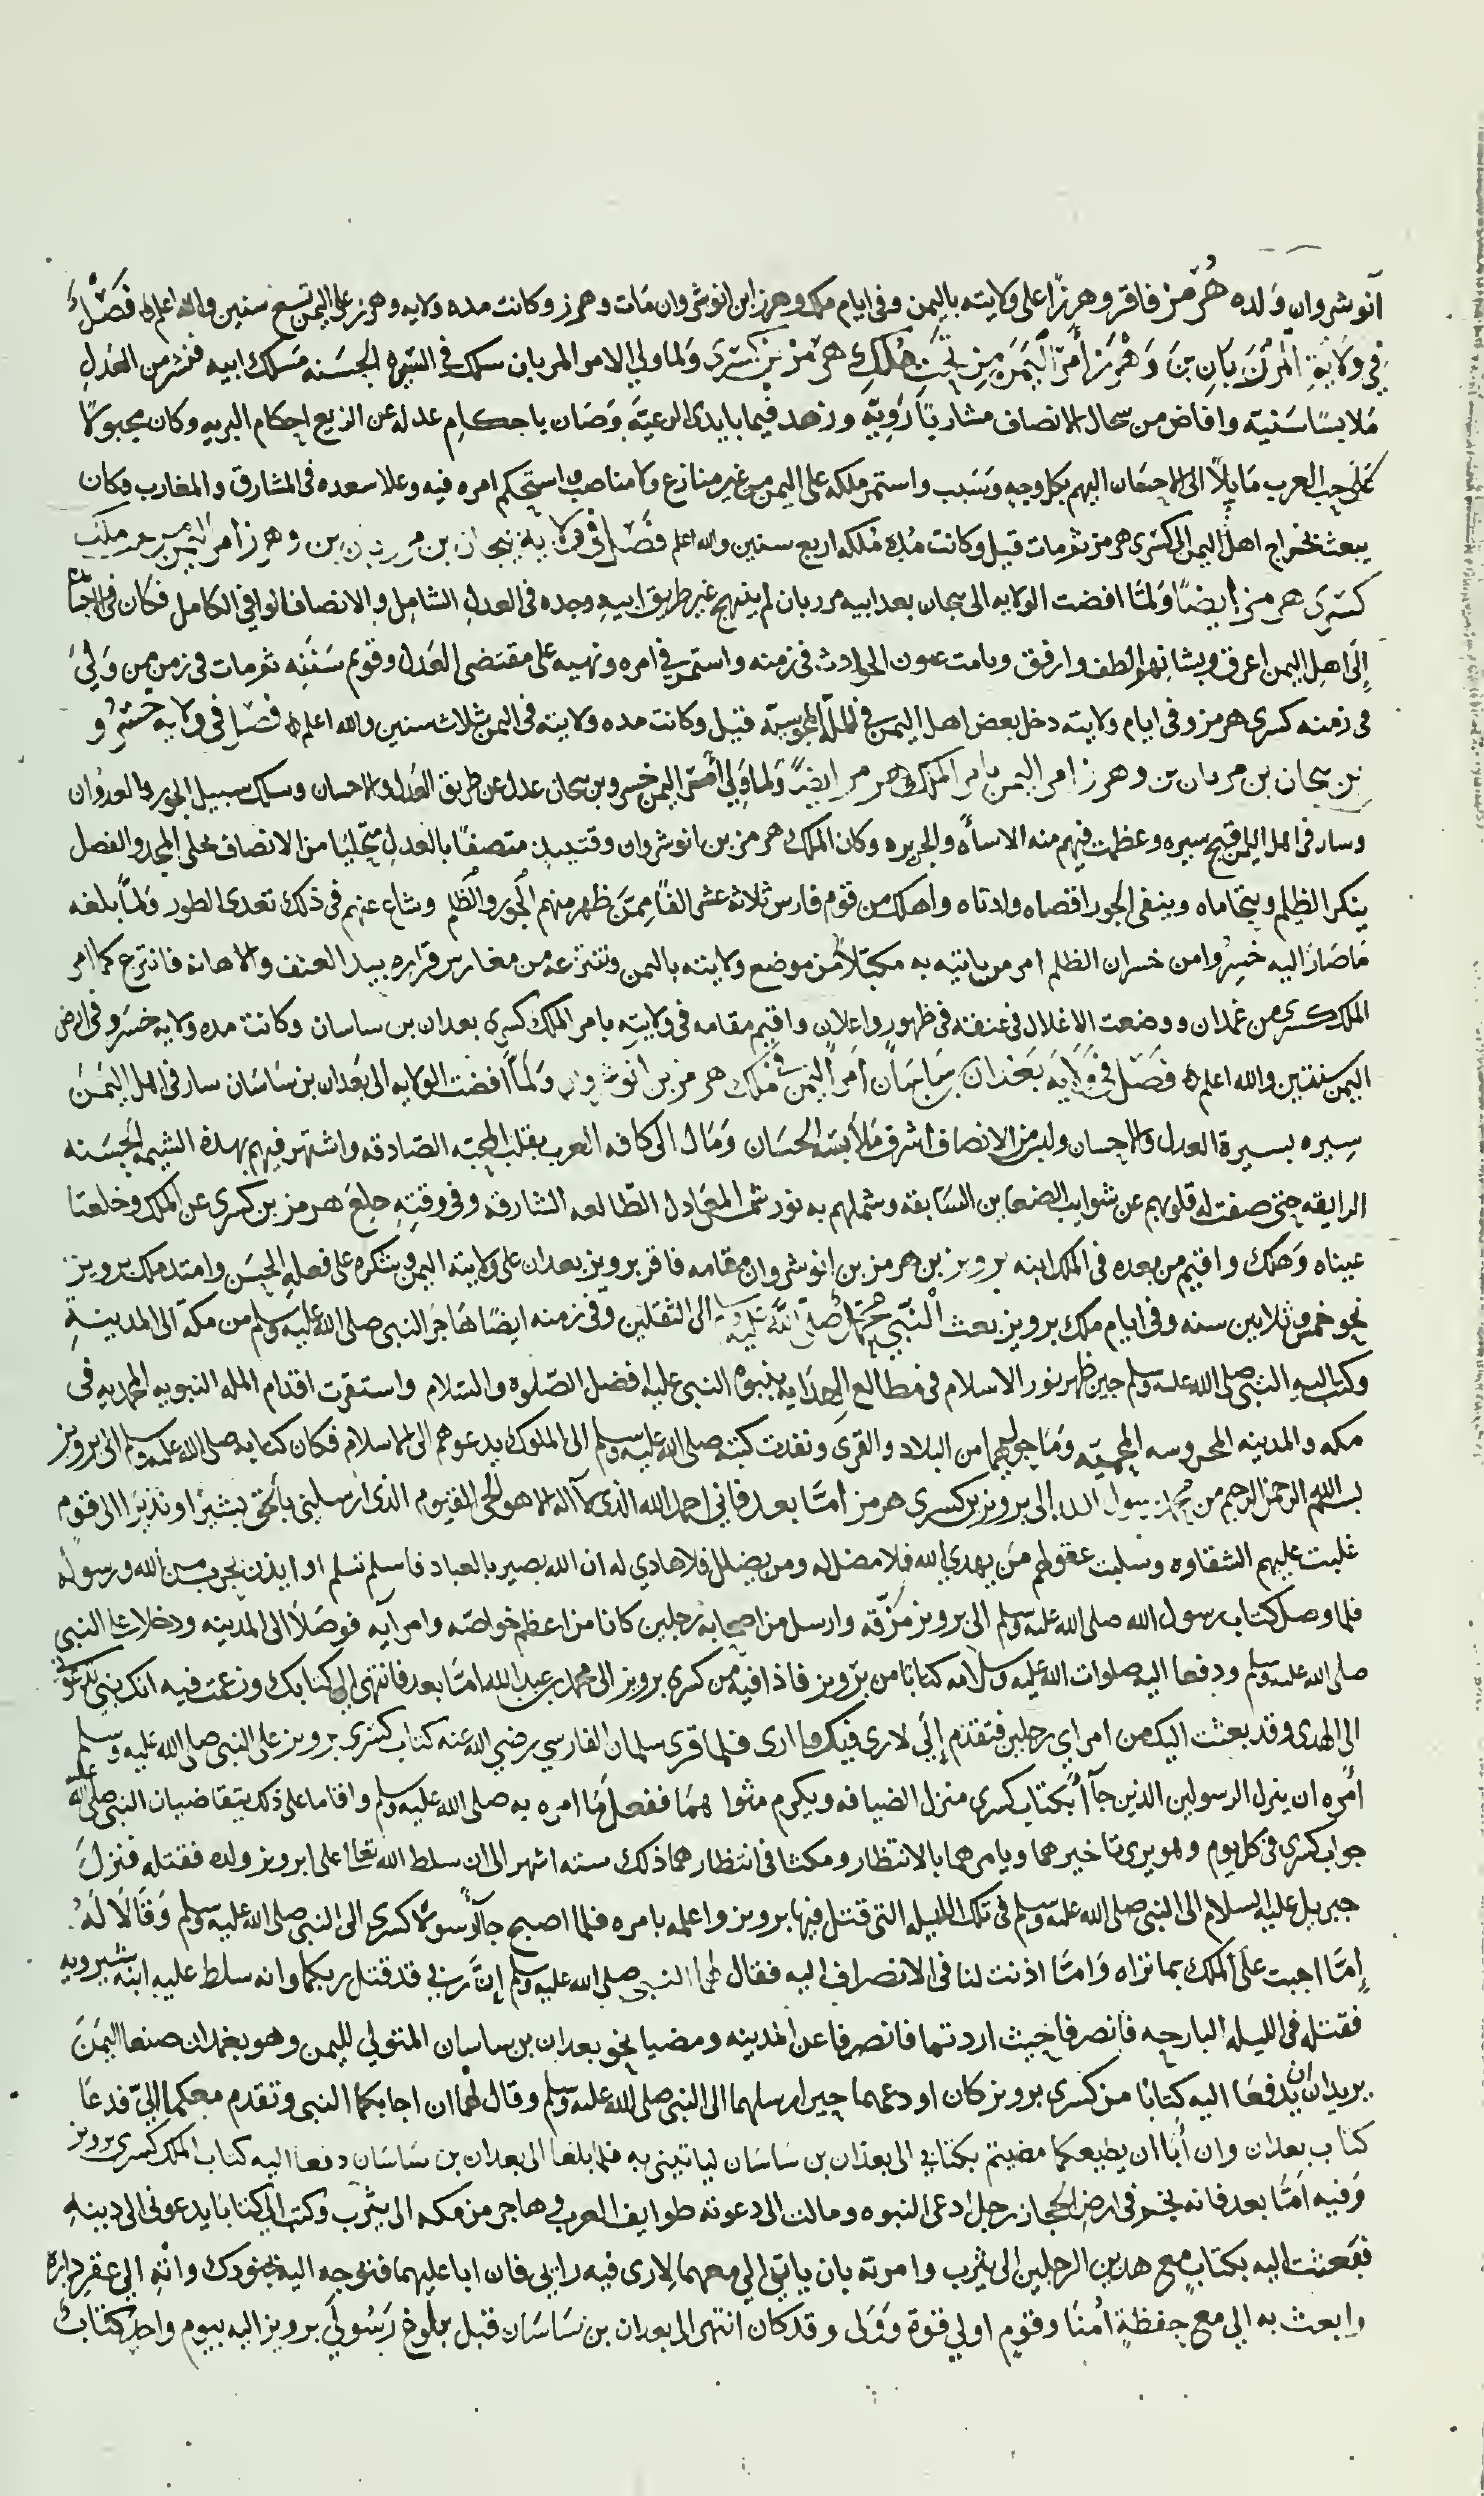 انوشروان ولده هُرمُز فاقر وهرزًا على ولايته باليمن وفى ايام ملك وهرز ابن انوشروان مَات وهرز وكانت مده ولايه وهرز على اليمن تسع سنين والله اعلم فَصْلٌ
فِي وَلَايَةِ المَرْزَبَانِ بنَ وَهْرَز أَمرَ اليَمَنِ مِن تَحْتِ مُلْكِ هرْمُزْ بن كسْرَى وَلما ولي الامر المرزبان سلك فى السّيره الحَسَنه مَسلك ابيه فنشر من العَدلِ
مَلابسًا سَنية وافاض من سجال الانصاف مشاربًا رَويّة وزهد فيما بايدى الرعيّة وَصَان باحكامِ عدله عن الزيغ احكام البريه وكان مجبولاً
عَلَى حب العرب مَايلاً الى الاحسَان اليهم بكل وجهٍ وسَبب واستمر ملكه على اليمن من غير منازع ولا مناصب واستحكم امره فيه وعلا سعده فى المشارق والمغارب وكان
يبعث بخراج اهل اليمن الى كسْرى هرمز ثم مات قيل وكانت مُدة مُلكه اربع سنين والله اعلم فَصْل فى وَلايَة سبحان بن مرزبان بن وهرز امر اليمن من ملك
كسْرى هرمز أيضًا ولمّا افضت الولايه الى سبحان بعد ابيه مرزبان لم ينهج غير طريق ابيه وجده فى العدل الشامل والانصاف الوافي الكامل فكان فى الاحسان
إلَى اهل اليمن اعرق وبشانهم الطف وارفق ونامت عيون الحوادث فى زمنه واستمر في امره ونهيه على مقتضى العَدل وقويم سَنَنِه ثم مات فى زمن من وَلِيَ
فى زمنه كسرى هرمز وفى ايام ولايته دخل بعض اهل اليمن في الملّة المجوسيّة قيل وكانت مده ولايته فى اليمن ثلاث سنين والله اعلم فصْل فى ولايه خُسْرُو
بن سبحان بن مرزبان بن وهرز امر اليمن بامر الملك هرمز ايضًا ولما وَلي أَمْرَ اليمن خسرو بن سبحان عدل عن طريق العَدل والاحسان وسلك سبيل الجور والعدوان
وسار فى اهل اليمن اقبح سيره وعظمت فيهم منه الاساءَه والجريره وكان الملك هرمز بن انوشروان وقتيذٍ متصفًا بالعَدلِ متحليًا من الانصاف بحلى المجد والفضل
ينكر الظلم ويتحاماه وينفى الجور اقصاه وادناه واهلك من قوم فارس ثلاثة عشر الفًا مِمّن ظهر منهم الجور والظلم وشاع عنهم فى ذلك تعدى الطور ولمّا بلغه
مَا صَارَ اليه خسروا من خسران الظلم امر من ياتيه به مكبّلاً من موضع ولايته باليمن وتنتزعه من مغارس قراره بيد العنف والاهانة فانتزع كما امر
الملك كسرى من غمدان ووضعت الاغلال فى عنقه فى ظهور واعلان واقيم مقامه فى ولايته بامر الملك كسرى بعدان بن ساسان وكانت مده ولايه خسرو فى ارض
اليمن سنتين والله اعلم فَصْل فى وَلايَه بَعْدَان بن سَاسَان أَمرَ اليمَن فى مُلك هرمز بن انوشروان ولمّا افضت الولايه الى بعدان بن سَاسَان سار فى اهل اليَمَنَ
سِيره بسيرة العدل والاحسان ولبس من الانصاف اشرق مَلابسَه الحسَان وَمَال الى كافه العرب بقلب المحبّه الصّادقه واشتهر فيهم بهذه الشيمه الحسَنه
الرايقه حتى صفت له قلوبهم عن شوايب الضعاين السّابقه وشملهم به نور شمس المعَادل الطّالعه الشارقه وفى وقتِهِ خلعَ هرمز بن كسرى عن الملك وخلعتا
عيناه وَهلك واقيم من بعده فى الملك ابنه برويز بن هرمز بن انوشروان مقامه فاقر برويز بعدان على ولاية اليمن وشكره على فعله الحسَن وامتد ملك برويز
نحو خمس وثلاثين سنه وفى ايام ملك برويز بعث النّبي مُحمّد صَلى الله عَليه وسلم الى الثقلين وفى زمنه ايضًا هَاجَر النبى صلى الله عليه وسلم من مكة الى المدينةِ
وكتب اليه النبى صلى الله عليه وسلم حين ظهر نور الاسلام فى مطالع الهدايه بنبوه النبى عليه افضل الصّلوه والسّلام واستقرت اقدام المله النبويه المحمديه فى
مكه والمدينه المحروسه المحميّه وَمَا حولهما من البلاد والقرى ونفدت كتبه صلى الله عليه وسلم الى الملوك يدعوهم الى الاسلام فكان كتابه صلى الله عليه وسلم الى برويز
بسم الله الرحمن الرحيم من محمد رسول الله الى برويز بن كسرى هرمز امّا بعد فاني احمد الله الذى لا آله الا هو الحي القيوم الذى ارسلنى بالحق بشيرًا ونذيرًا الى قوم
غلبت عليهم الشقاوه وسلبت عقولهم مَن يهدي الله فلا مضل له ومن يضلل فلا هادي له ان الله بصير بالعباد فاسلم تسلم او ايذن بحرب من الله ورسوله
فلما وصل كتاب رسول الله صلى الله عليه وسلم الى برويز مزّقه وارسل من اصحابه رجلين كانا من اعظم خواصّه وامرآيه فوصَلاَ الى المدينه ودخلا على النبي
صلى الله عليه وسلم ودفعا اليه صلوات الله عليه وسلامه كتابًا من برّويز فاذا فيه من كسرى برويز الى محمد بن عبد الله امّا بعد فانتهى الي كتابك وزعمت فيه انك نبي تدعوني
الى الهدى وقد بعثت اليك من امرآي رجلين فتقدم إلَي لارى فيك ما ارى فلما قرى سلمان الفارسي رضي الله عنه كتاب كسرى برويز على النبى صلى الله عليه وسلم
أمَره ان ينزل الرسولين الذين جآآ بكتاب كسرى منزل الضيافه ويكرم مثواهمَا ففعل مَا امره به صلى الله عليه وسلم واقاما على ذلك يتقاضيان النبى صلى الله عليه
جواب كسرى فى كل يوم ولم يرى تاخيرهما ويامرهما بالانتظار ومكثا فى انتظارهما ذلك سته اشهر الى ان سلط الله تعالى على ابرويز ولده فقتله فنزلَ
جبريل عليه السلام الى النبى صلى الله عليه وسلم فى تلك الليله التى قتل فيها برويز واعلمه بامره فلما اصبح جآ رسولا كسرى الى النبى صلى الله عليه وسلم وَقَالاَ لَهُ
إمّا اجبت عَلَى الملك بما تراه وَامّا اذنت لنا فى الانصراف اليه فقال لهما النبى صلى الله عليه وسلم إنّ رَبي قد قتل ربكما وانه سلط عليه ابنه شيرويه
فقتله فى الليله البارحه فانصرفا حيث اردتما فانصرفا عن المدينه ومضيا نحو بعدان بن ساسان المتولي لليمن وهو بغمدان صنعا اليمَنَ
يريدان ان يدفعَا اليه كتابًا من كسرى برويز كان اودعهما حين ارسلهما الى النبى صلى الله عليه وسلم وقال لهما ان اجابكما النبى وتقدم معكما الىّ فدعَا
كتاب بعدان وان أبَا ان يطيعكما مضيتم بكتابي الى بعدان بن سَاسَان لياتينى به فلما بلغا الى بعدان بن سَاسَان دفعا اليه كتاب الملك كسرى برويز
وَفيه امّا بعد فانه نجم فى ارضِ الحجاز رجل ادعى النبوه ومالت الى دعوته طوايف العرب وهاجر من مكه الى يثرب وكتب الي كتابًا يدعونى الى دينهِ
فبَعثت اليه بكتابٍ مع هدين الرجلين الى يثرب وامرته بان ياتى الي معهما لارى فيه رايى فان ابا عليهما فتوجه اليه بجنودك وانته الي عقر داره
وابعث به الي مع حفظةٍ اُمنَا وقوم اولي قوة وَوَلى وقد كان انتهى الى بعدان بن سَاسَان قبل بلوغ رَسُولَي برويز اليه بيوم واحد كتابُ